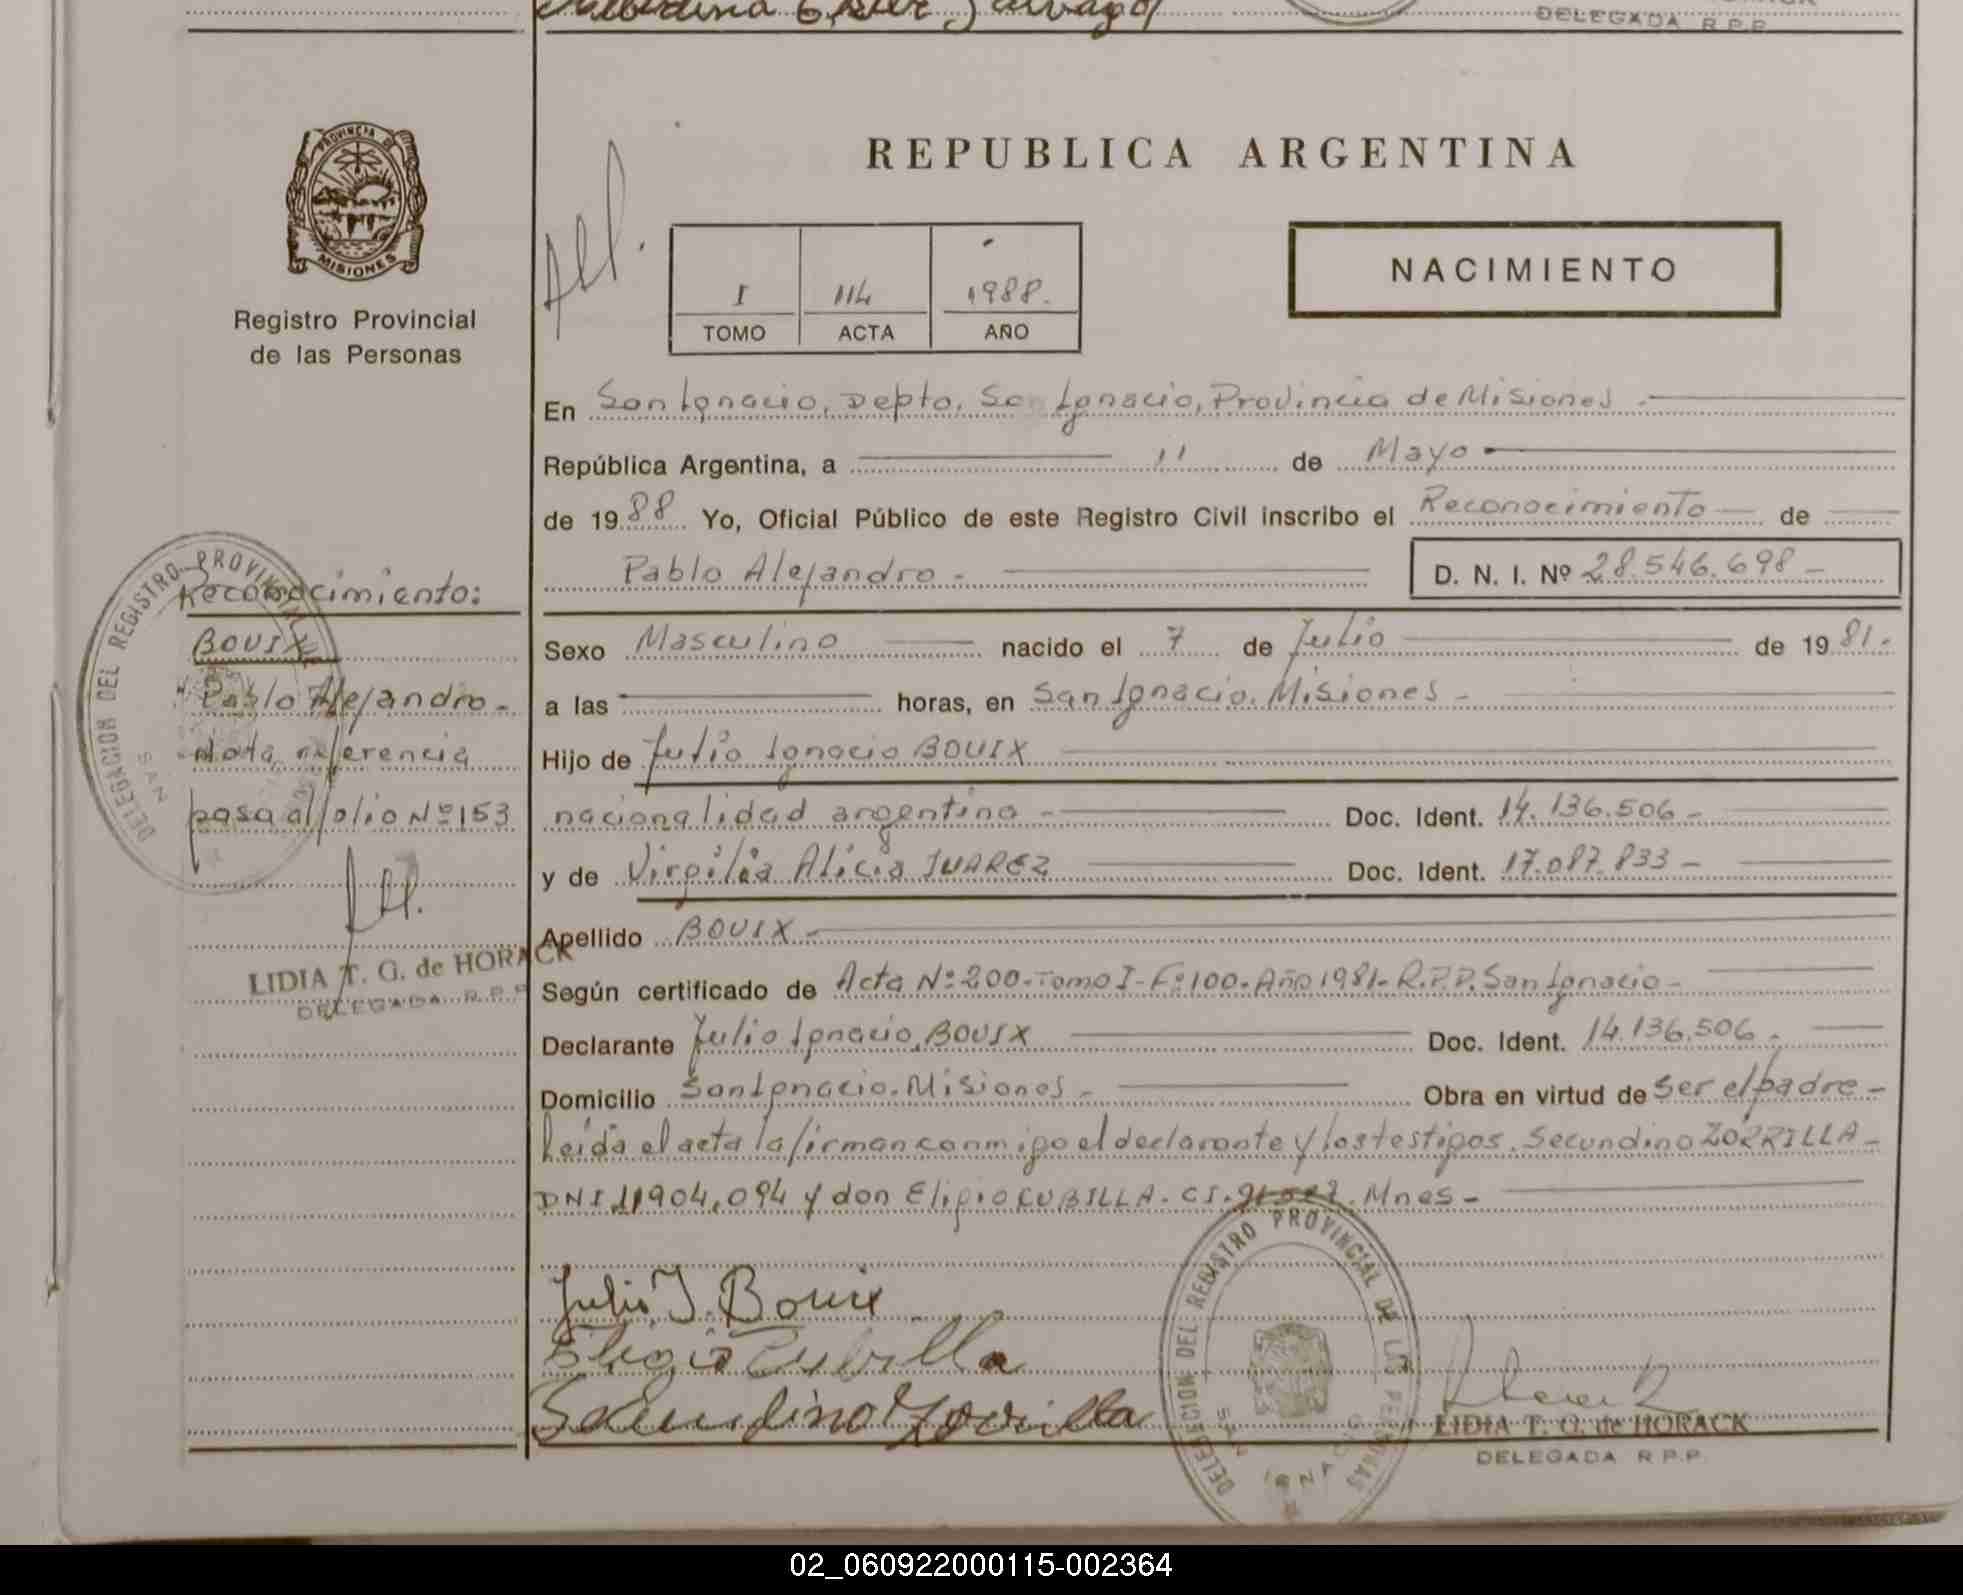 DELEGADA R.P.P.
PROVINCIA DE
MISIONES
Registro Provincial
de las Personas
REPUBLICA ARGENTINA
I 114 1988.
TOMO ACTA AÑO
NACIMIENTO
En San Ignacio, Depto. San Ignacio, Provincia de Misiones -
República Argentina, a 11 de Mayo
de 1988 Yo, Oficial Público de este Registro Civil inscribo el Reconocimiento de
Pablo Alejandro - D. N. I. Nº 28.546.698 -
Sexo Masculino nacido el 7 de Julio de 1981.
a las horas, en San Ignacio. Misiones -
Hijo de Julio Ignacio BOUIX
nacionalidad argentina - Doc. Ident. 14.136.506 -
y de Virgilia Alicia JUAREZ Doc. Ident. 17.087.833 -
Apellido BOUIX -
Según certificado de Acta Nº 200-Tomo I-Fº 100-Año 1981-R.P.P. San Ignacio -
Declarante Julio Ignacio BOUIX Doc. Ident. 14.136.506 -
Domicilio San Ignacio. Misiones - Obra en virtud de ser el padre -
Leída el acta la firman conmigo el declarante y los testigos. Secundino ZORRILLA -
DNI 11904.094 y don Eligio CUBILLA. CI. Mnes -
Julio I. Bouix
Eligio Cubilla
Secundino Zorrilla
DELEGACION DEL REGISTRO PROVINCIAL DE LAS PERSONAS
SAN IGNACIO
LIDIA T. G. de HORACK
DELEGADA R.P.P.
Reconocimiento:
BOUIX
Pablo Alejandro -
Nota referencia
pasa al folio Nº 153
DELEGACION DEL REGISTRO PROVINCIAL
SAN
LIDIA T. G. de HORACK
DELEGADA R.P.P.
02_060922000115-002364